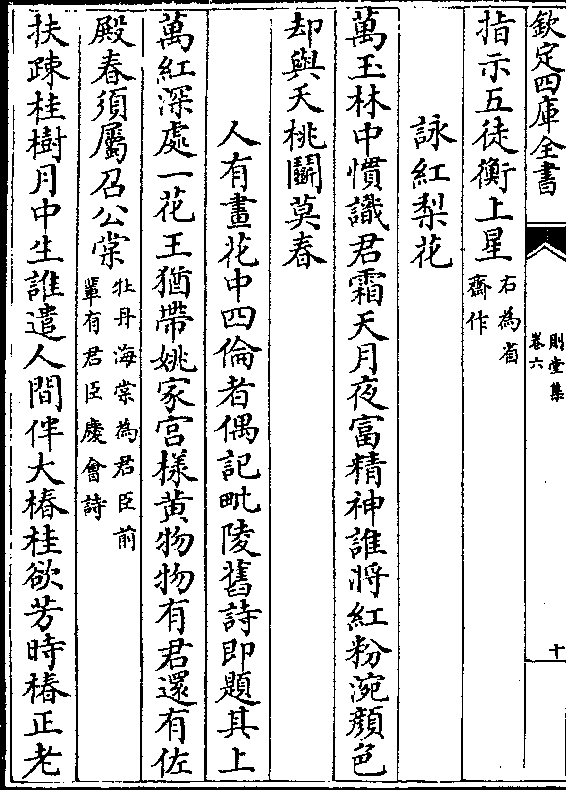 欽定四庫全書
則堂集
卷六
十
指示五徒衡上星
右為省
齋作
詠紅梨花
萬玉林中慣識君霜天月夜富精神誰將紅粉涴顔色
却與夭桃鬭莫春
人有畫花中四倫者偶記毗陵舊詩即題其上
萬紅深處一花王猶帶姚家宫樣黄物物有君還有佐
殿春須屬召公棠
牡丹海棠為君臣前
輩有君臣慶會詩
扶疎桂樹月中生誰遣人間伴大椿桂欲芳時椿正老